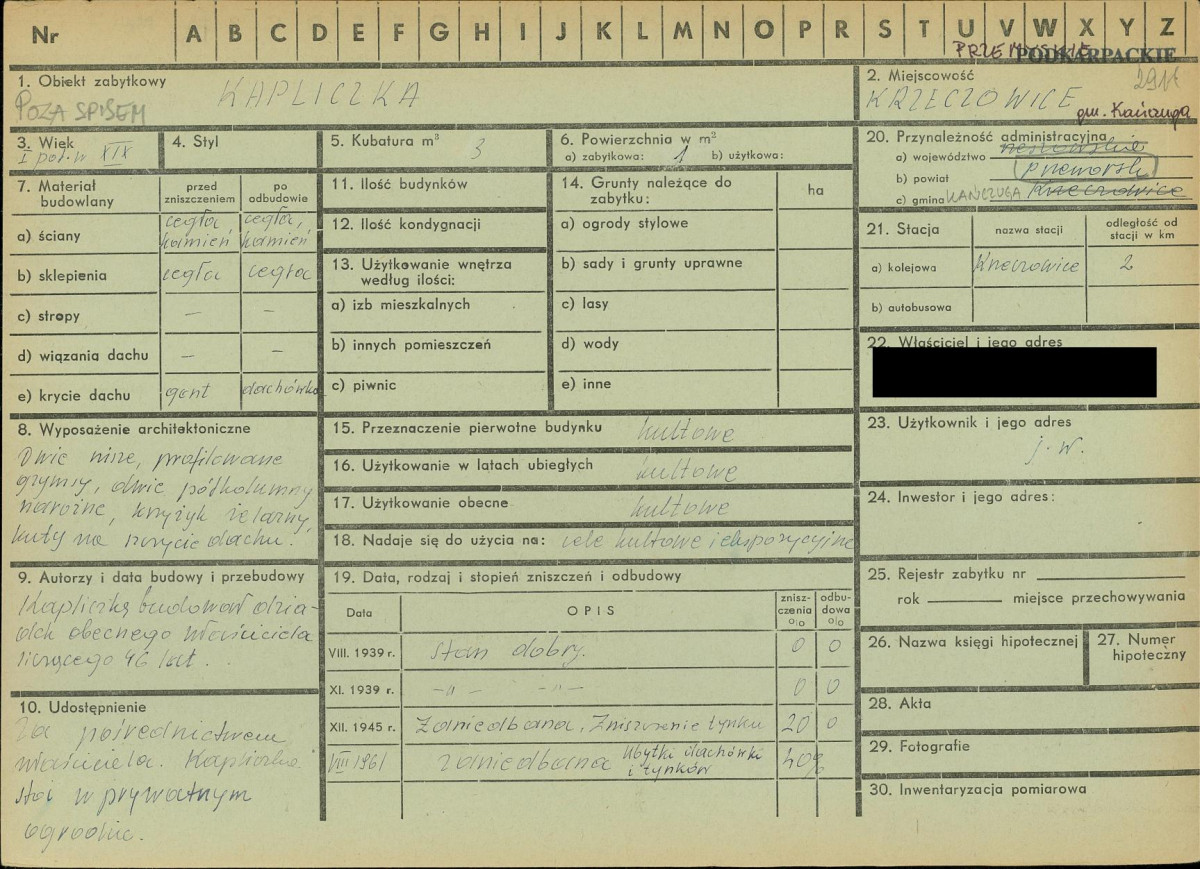 Nr A B C D E F G H I J K L M N O P R S T U V W X Y Z
PRZEMYSKIE PODKARPACKIE
1. Obiekt zabytkowy KAPLICZKA
POZA SPISEM
2. Miejscowość
KRZECZOWICE
gm. Kańczuga
3. Wiek
I poł. w XIX
4. Styl
5. Kubatura m³ 3
6. Powierzchnia w m²
a) zabytkowa: 1 b) użytkowa:
7. Materiał budowlany
przed zniszczeniem
po odbudowie
a) ściany cegła, kamień cegła, kamień
b) sklepienia cegła cegła
c) stropy — —
d) wiązania dachu — —
e) krycie dachu gont dachówka
8. Wyposażenie architektoniczne
Dwie nisze, profilowane
gzymsy, dwie półkolumny
narożne, krzyżyk żelazny,
kuty na szczycie dachu.
9. Autorzy i data budowy i przebudowy
Kapliczkę budował dzia-
dek obecnego właściciela
liczącego 46 lat.
10. Udostępnienie
Za pośrednictwem
właściciela. Kapliczka
stoi w prywatnym
ogrodzie.
11. Ilość budynków
12. Ilość kondygnacji
13. Użytkowanie wnętrza
według ilości:
a) izb mieszkalnych
b) innych pomieszczeń
c) piwnic
14. Grunty należące do
zabytku:
ha
a) ogrody stylowe
b) sady i grunty uprawne
c) lasy
d) wody
e) inne
15. Przeznaczenie pierwotne budynku kultowe
16. Użytkowanie w latach ubiegłych kultowe
17. Użytkowanie obecne kultowe
18. Nadaje się do użycia na: cele kultowe i ekspozycyjne
19. Data, rodzaj i stopień zniszczeń i odbudowy
Data OPIS znisz-czenia % odbu-dowa %
VIII. 1939 r. stan dobry. 0 0
XI. 1939 r. -"- -"- 0 0
XII. 1945 r. Zaniedbana, Zniszczenie tynku 20 0
VIII 1961 zaniedbana Ubytki dachówki i tynków 40%
20. Przynależność administracyjna
a) województwo rzeszowskie
b) powiat przeworsk
c) gmina KAŃCZUGA Krzeczowice
21. Stacja
nazwa stacji
odległość od stacji w km
a) kolejowa Krzeczowice 2
b) autobusowa
22. Właściciel i jego adres
23. Użytkownik i jego adres
j. w.
24. Inwestor i jego adres:
25. Rejestr zabytku nr
rok miejsce przechowywania
26. Nazwa księgi hipotecznej
27. Numer hipoteczny
28. Akta
29. Fotografie
30. Inwentaryzacja pomiarowa